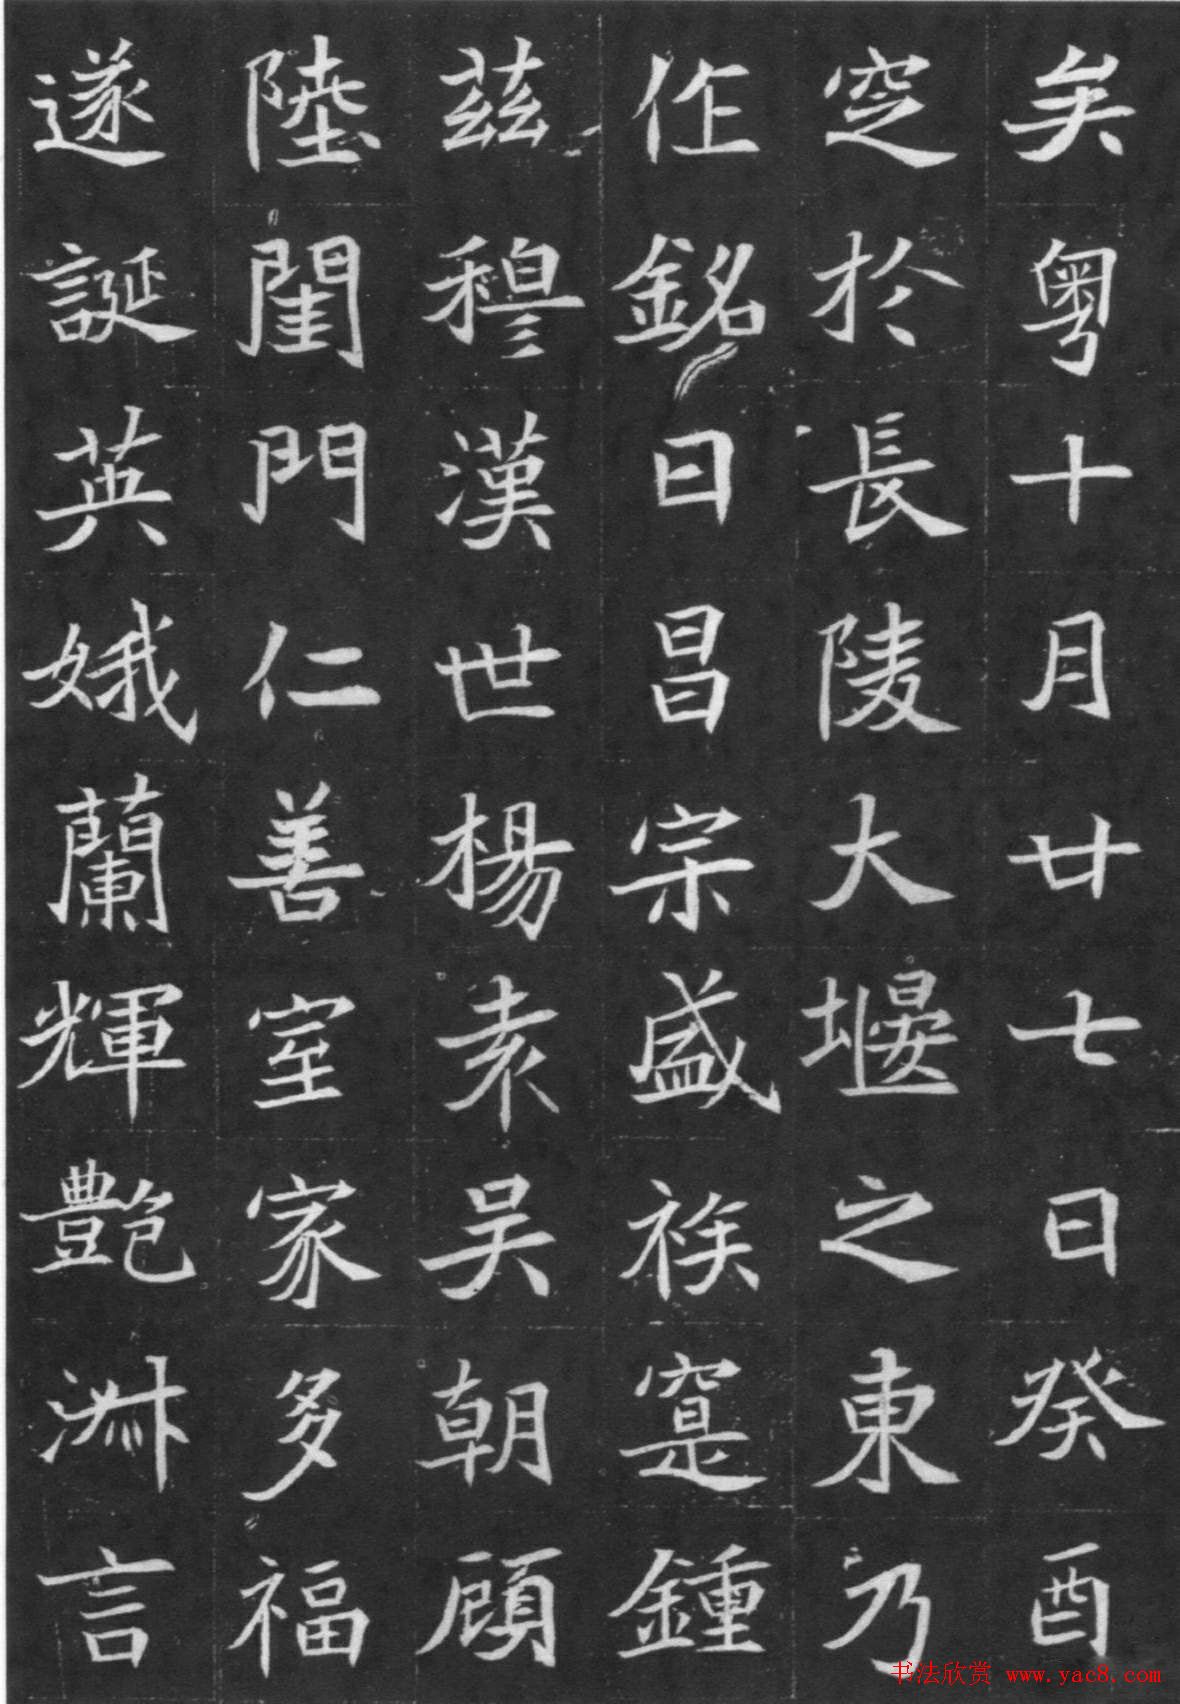 矣粤十月廿七日癸酉
窆於長陵大堰之東乃
作銘曰昌宗盛族寔鍾
茲穆漢世楊袁吴朝顧
陸閨門仁善室家多福
遂誕英娥蘭輝艷淋言
书法欣赏 www.yac8.com